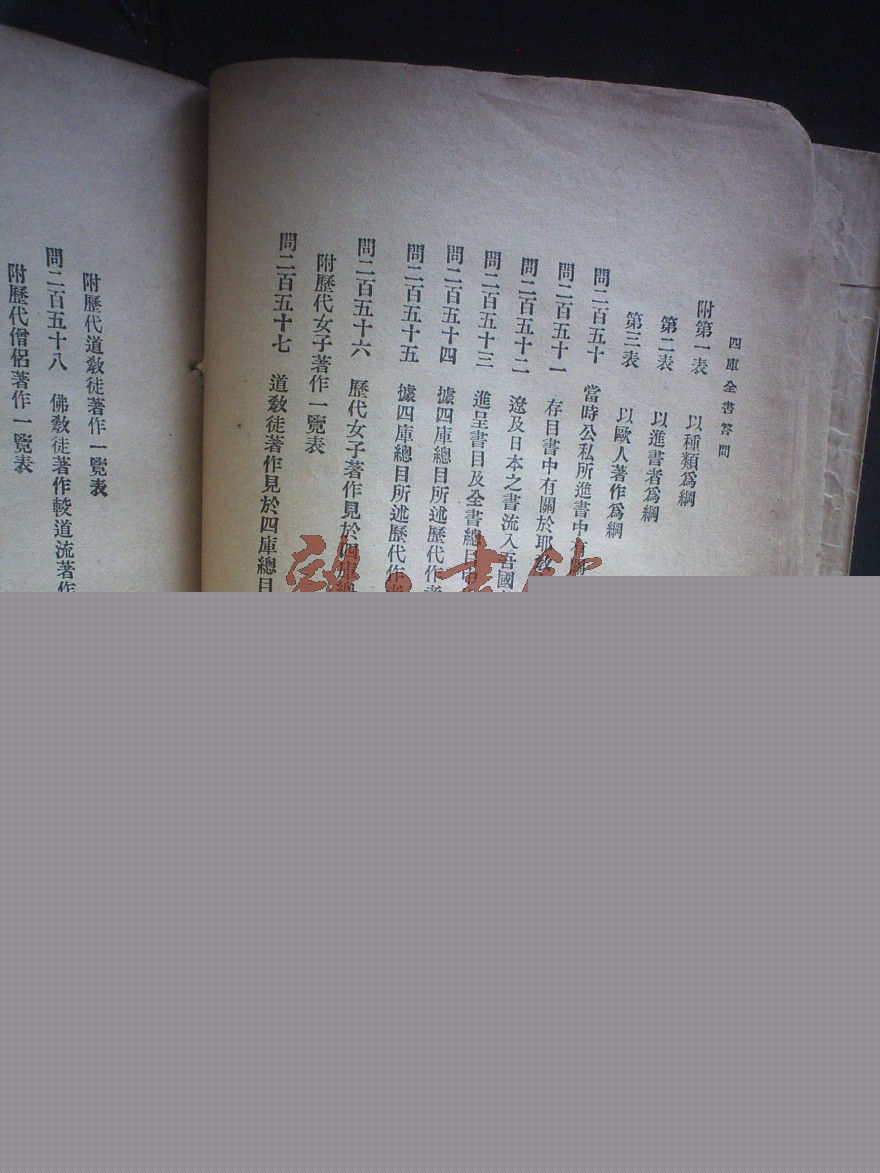 四庫全書答問
附第一表　以種類爲綱
第二表　以進書者爲綱
第三表　以歐人著作爲綱
問二百五十　當時公私所進書中有
問二百五十一　存目書中有關於耶教
問二百五十二　遼及日本之書流入吾國
問二百五十三　進呈書目及全書總目
問二百五十四　據四庫總目所述歷代作者
問二百五十五　據四庫總目所述歷代作
問二百五十六　歷代女子著作見於四庫
附歷代女子著作一覽表
問二百五十七　道敎徒著作見於四庫總目
附歷代道敎徒著作一覽表
問二百五十八　佛敎徒著作較道流著作
附歷代僧侶著作一覽表